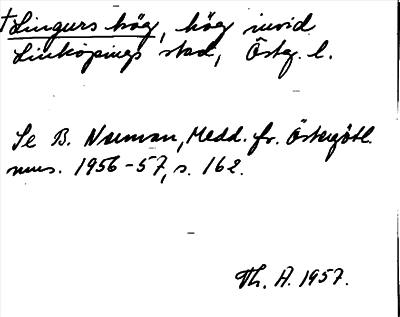 †Lingurs hög, hög invid
Linköpings stad, Östg. l.
Se B. Neuman, Medd. fr. Östergötl.
mus. 1956-57, s. 162.
Th. A. 1957.